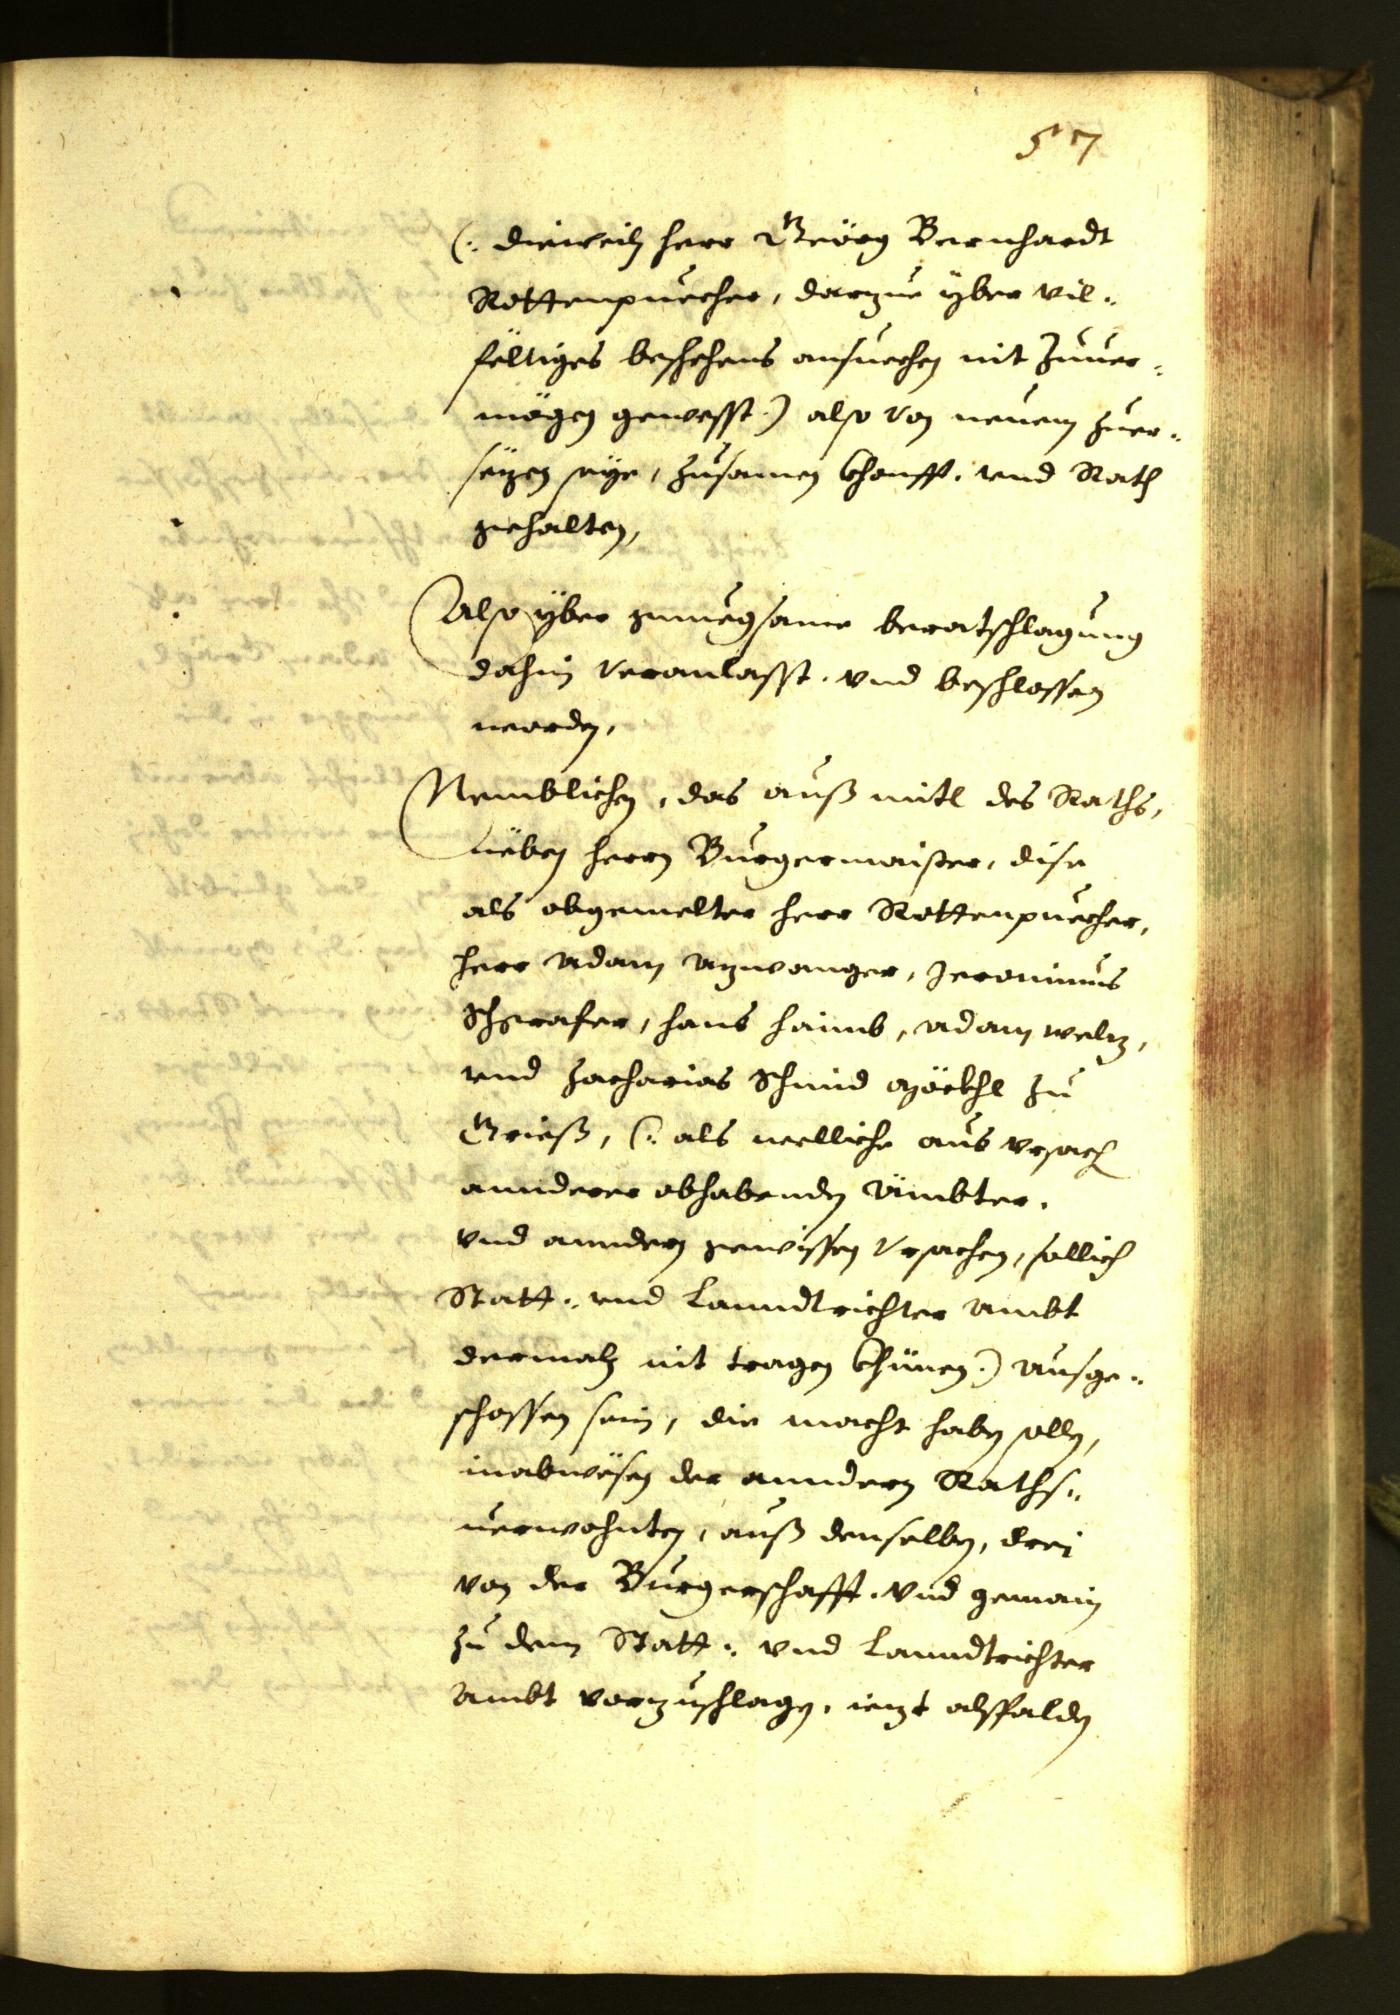 57
(: dieweiln herr Geörg Bernhardt
Rottenpuecher, darzue yber vil¬
feltiges beschehens ansuechen nit zuuer¬
mögen gewesst :) also von neuem zuer¬
sezen seye, zusamen khonfft. vnd Rath
gehalten,
Also yber genuegsame beratschlagung
dahin veranlasst. vnd beschlossen
worden,
Nemblichen, das auß mitl des Raths,
neben herrn Burgermaister, dise
als obgemelter herr Rottenpuecher,
herr Adam Azwanger, Jeronimus
Schgrafer, hans haimb, Adam Welz,
vnd Zacharias Schmid zu
Grieß, (: als welliche aus vrsach
annderer obhabenden Ämbter.
vnd anndern gewissen vrsachen, sollich
Statt¬ vnd Lanndtrichter Ambt
dermaln nit tragen khünen :) ausge¬
schossen sein, die macht haben solln,
in abwesen der anndern Raths¬
uerwohnten, auß denselben, drei
von der Burgerschafft. vnd gemain
zu dem Statt¬ vnd Lanndtrichter
Ambt vorzuschlagen, iezt alßpalden